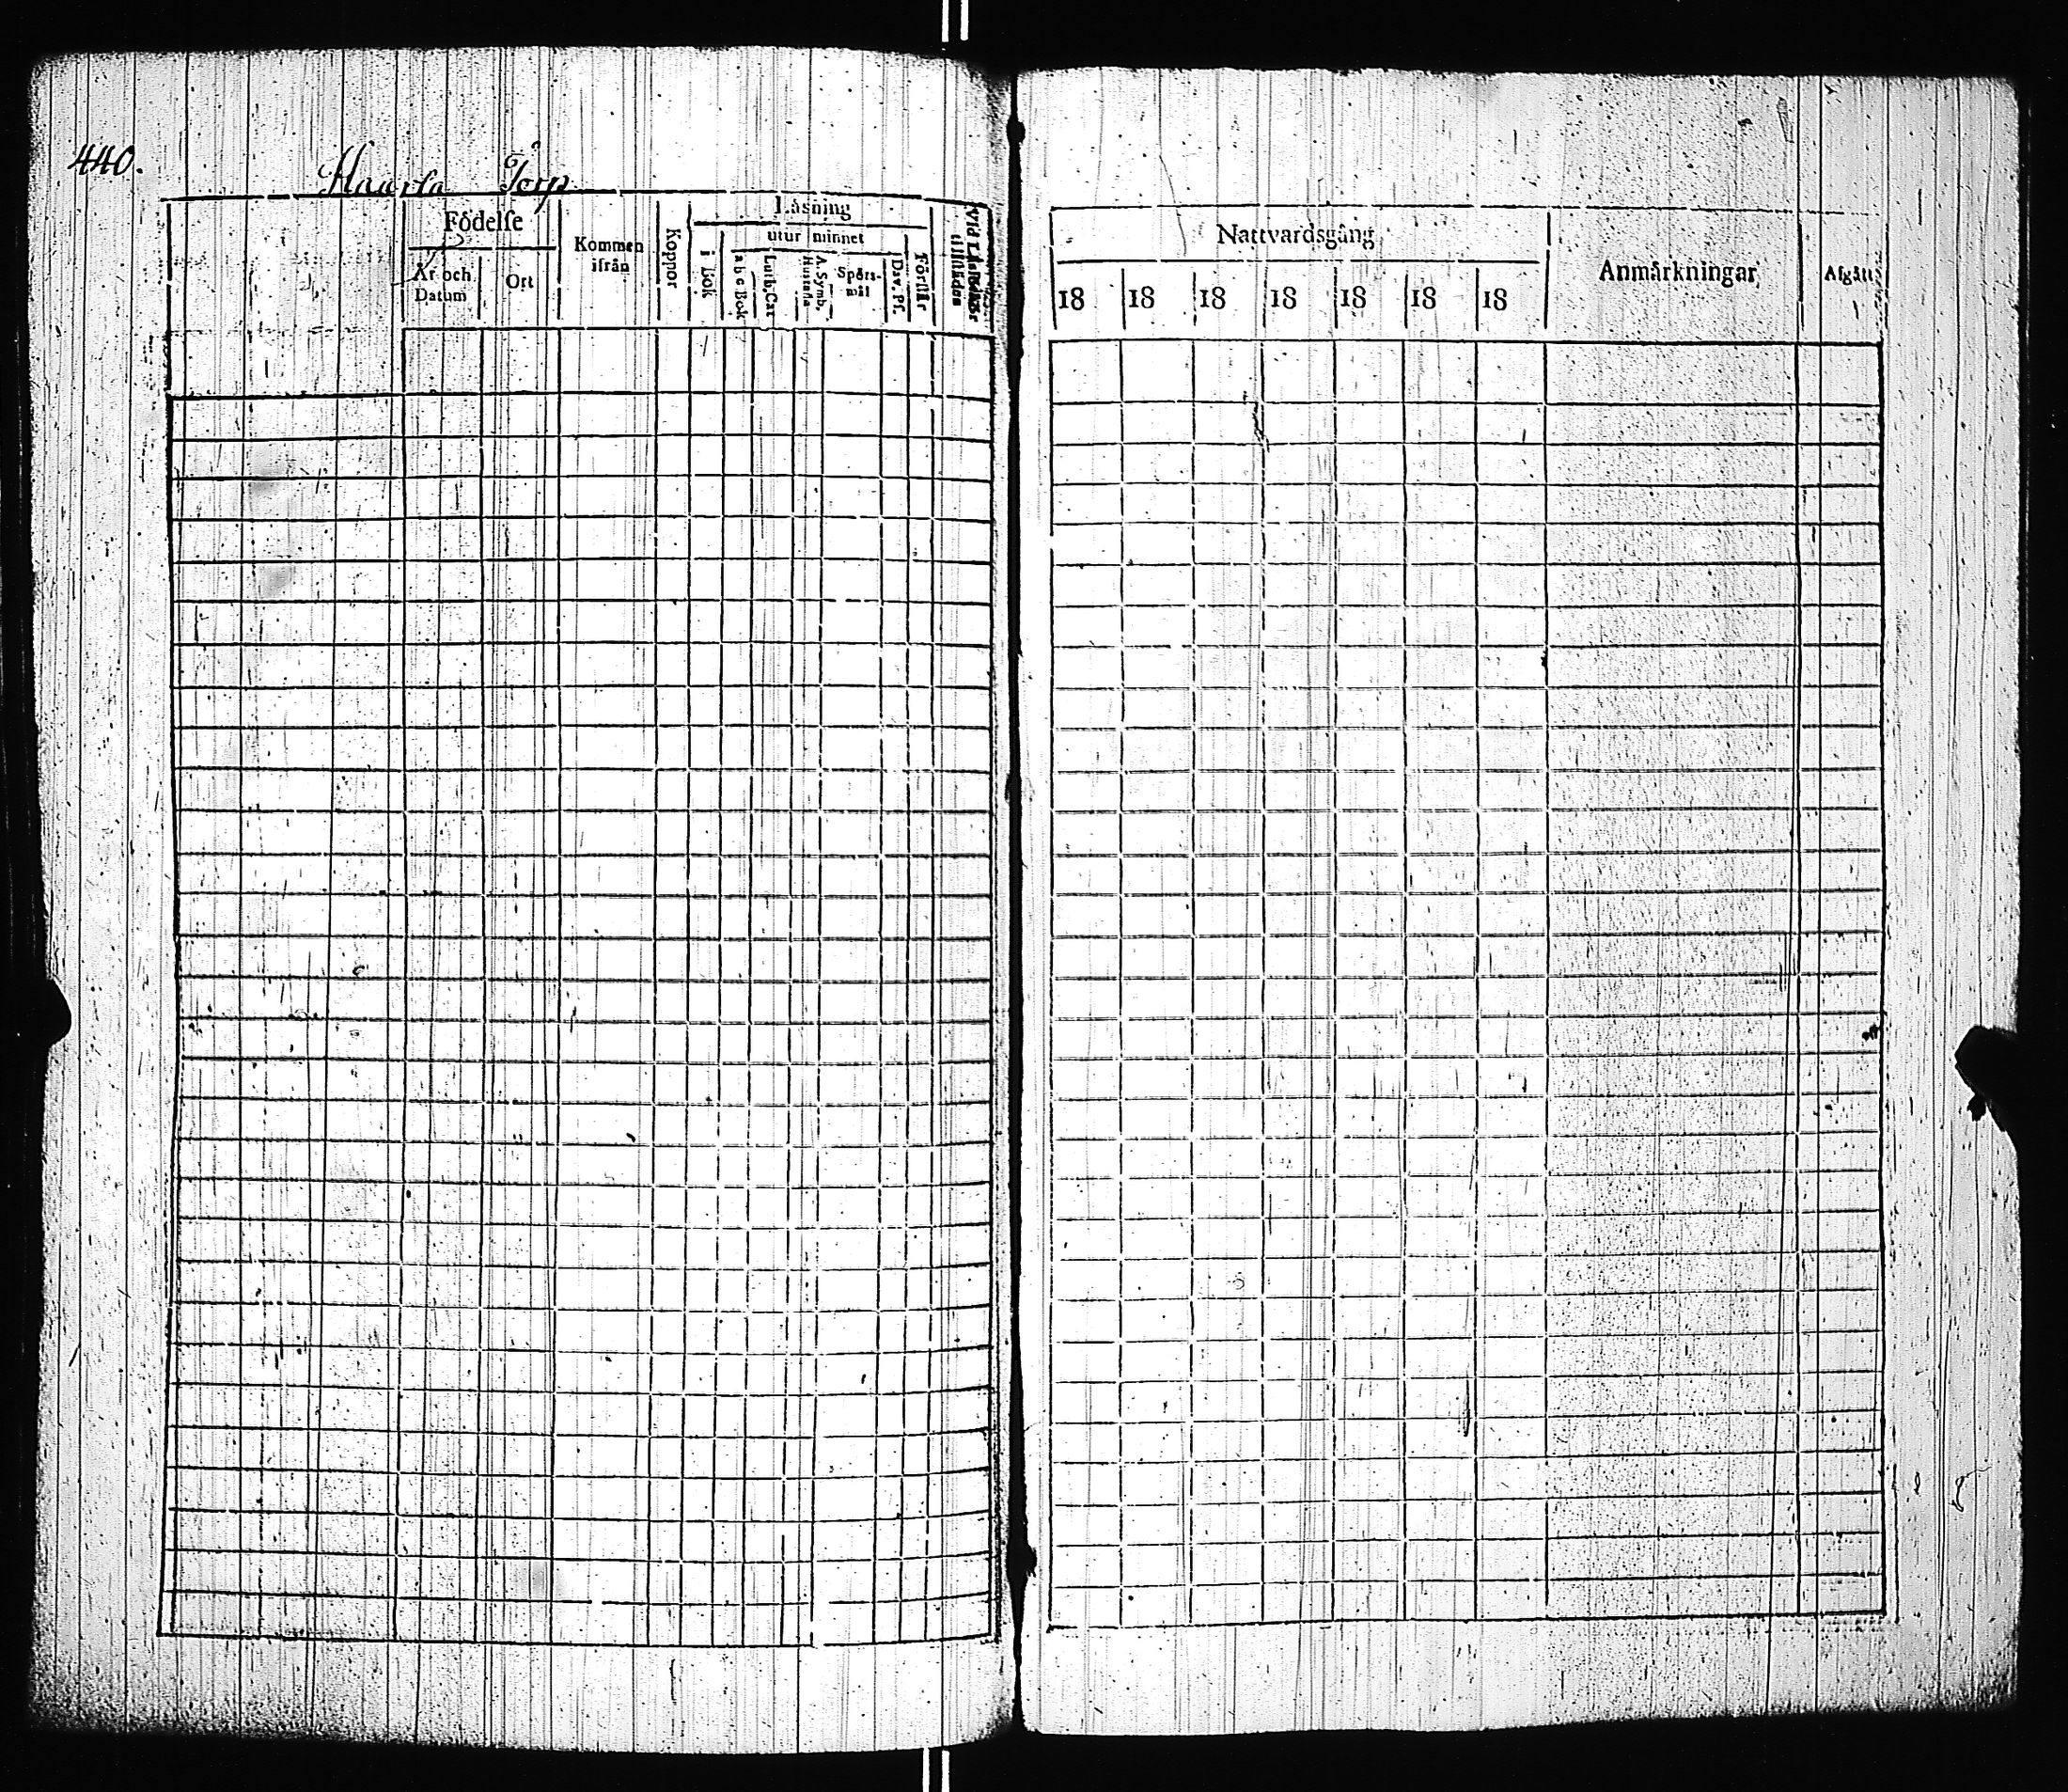 440.
Haarla Torp
Födelse
År och Datum
Ort
Kommen ifrån
Koppor
Läsning
i Bok
utur minnet
a b c Bok
Luth. Cat
A. Symb. Hustafla
Spörsmål
Dav. Ps.
Förstår
Nattvardsgång
18 18 18 18 18 18 18
Anmärkningar
Afgått